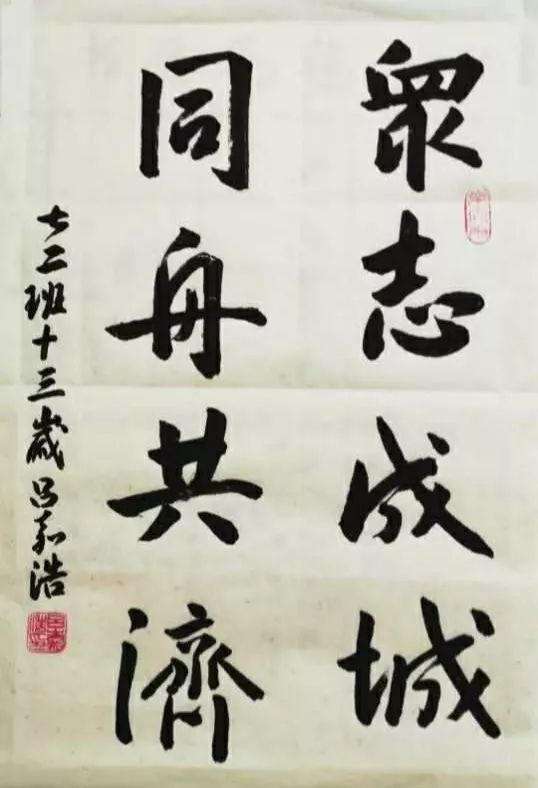 眾志成城
同舟共濟
七二班十三歲吕嘉浩